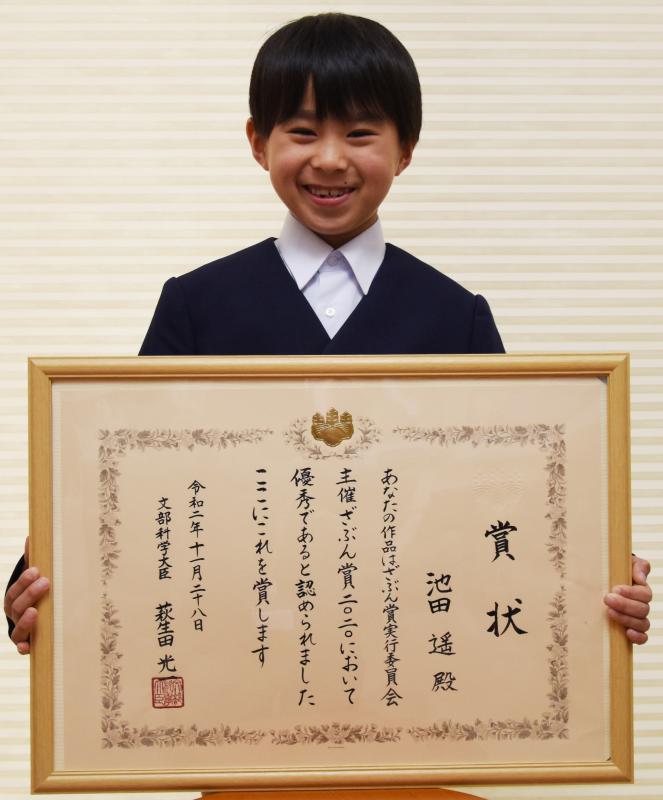 賞状
池田 遥 殿
あなたの作品はざぶん賞実行委員会
主催ざぶん賞二〇二〇において
優秀であると認められました
ここにこれを賞します
令和二年十一月二十八日
文部科学大臣 萩生田 光一